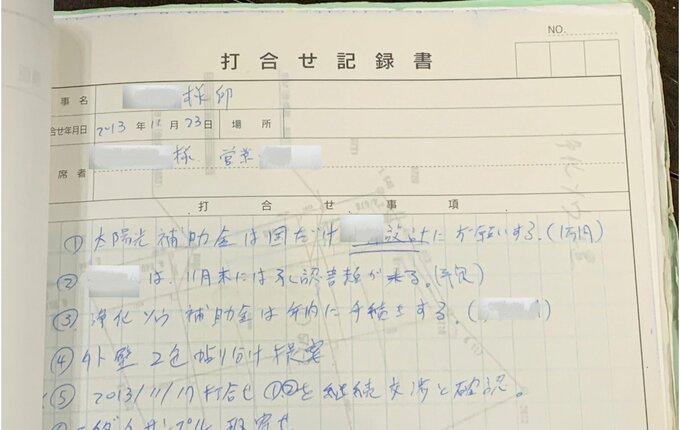 NO.
打合せ記録書
事名 様邸
合せ年月日 2013年11月23日 場所
席者 様 営業
打合せ事項
① 太陽光補助金は国だけ 設計にお願いする。
② は、11月末には 認書類が来る。
③ 浄化ソウ 補助金は年内に手続きする。(
④ 外壁2色貼り分け提案
⑤ 2013/11/17打合せ①②を継続交渉と確認。
サンプル取寄せ